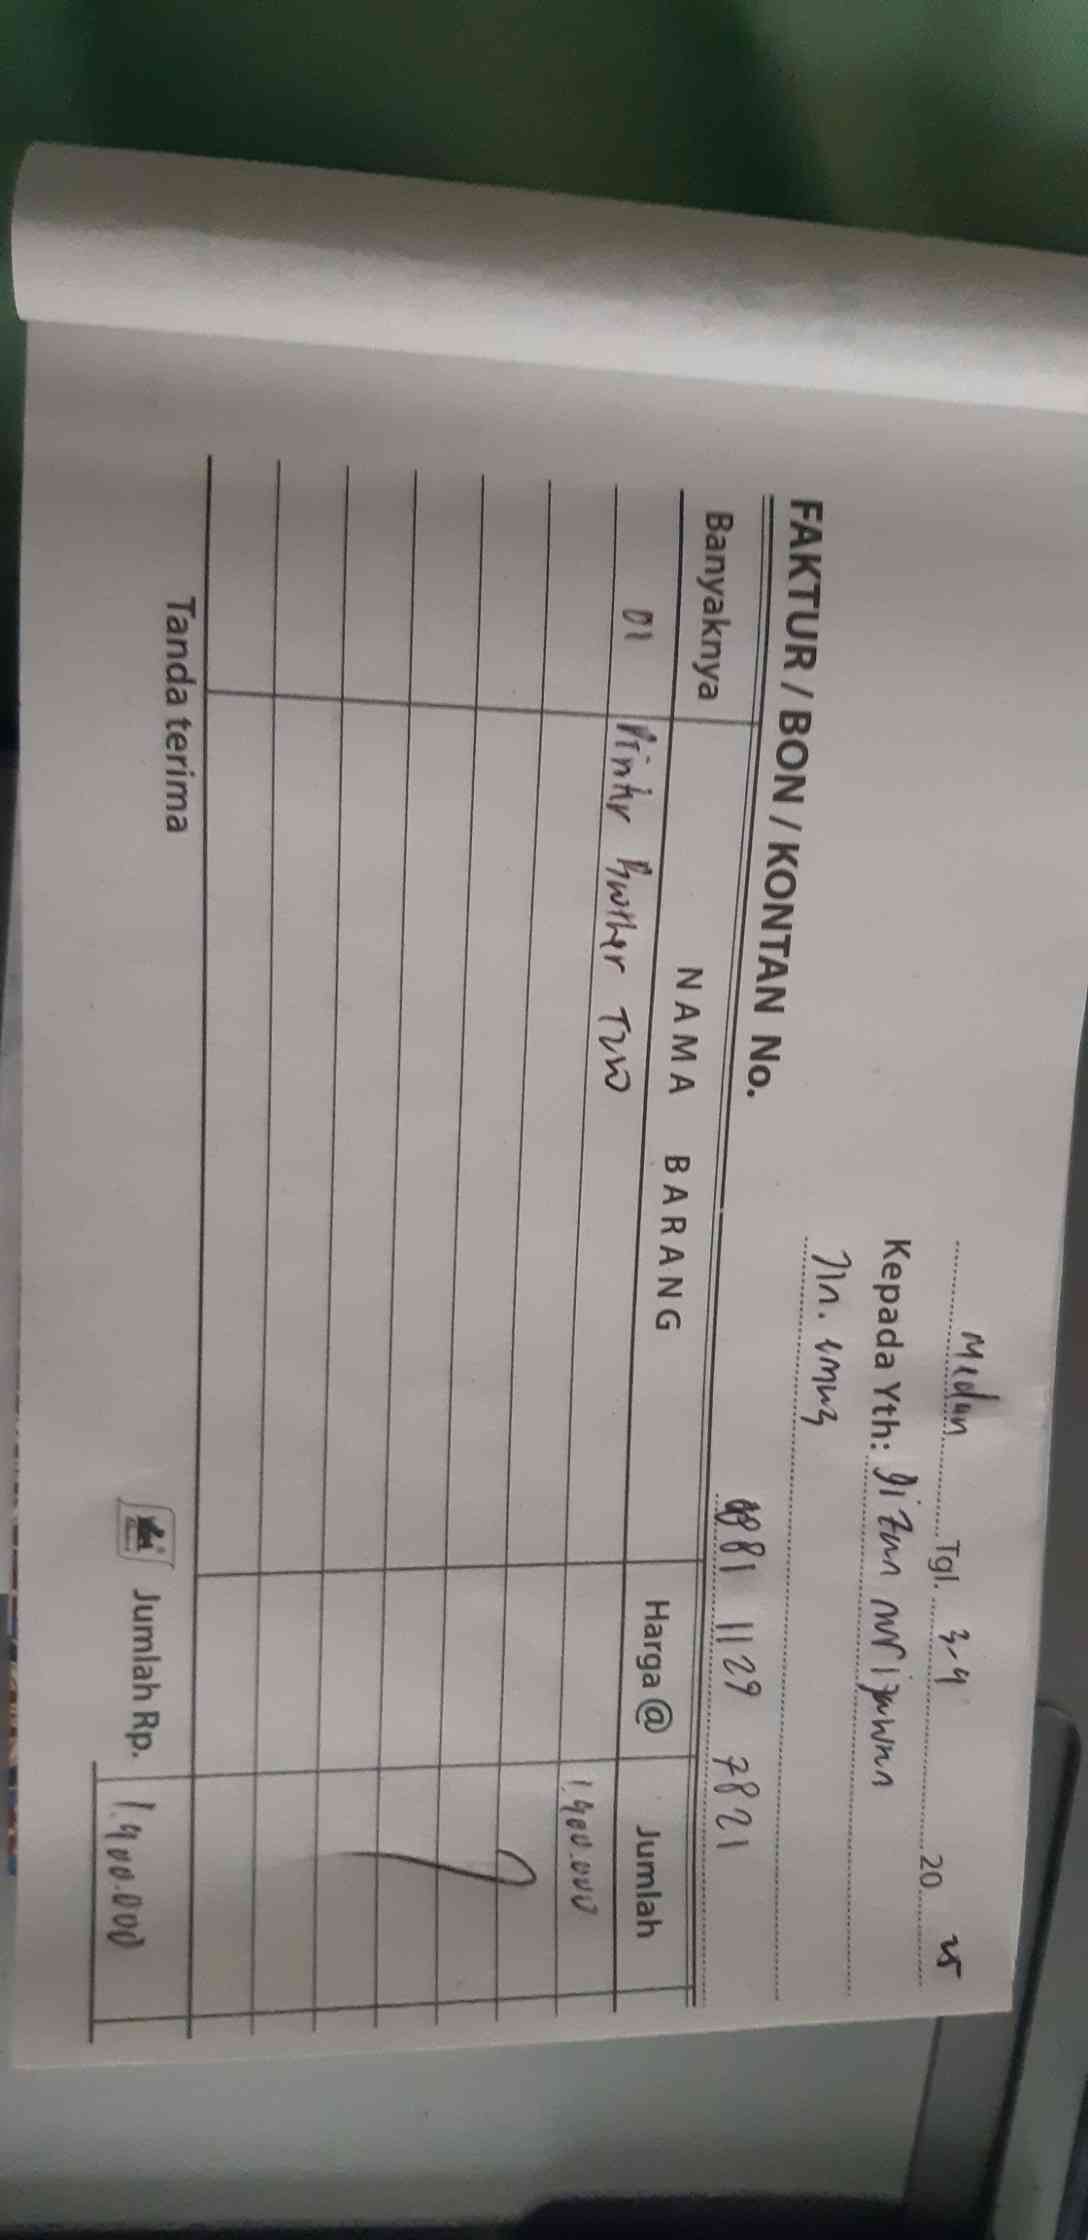 Medan Tgl. 3-4 20 25
Kepada Yth:
Jln.
0881 1129 7821
FAKTUR / BON / KONTAN No.
Banyaknya NAMA BARANG Harga @ Jumlah
01 Printer Brother T200 1.400.000
Tanda terima Jumlah Rp. 1.400.000